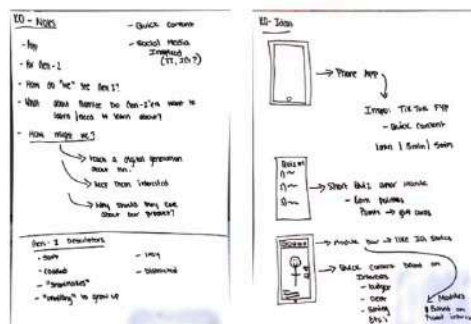 KO - Notes
- App
- for Gen-Z
- How do "we" see Gen Z?
- What about finance do Gen-Z'ers want to
learn / need to learn about?
- How might we?
→ teach a digital generation
about fin.
→ keep them interested
→ Why should they care
about our product?
- Quick content
- Social Media
Inspired
(TT, IG?)
Gen-Z Descriptors
- Soft
- Coddled
- "Snowflakes"
- "unwilling" to grow up
- lazy
- Distracted
KO - Ideas
→ Phone App
Inspo: TikTok FYP
- Quick content
1min | 3min | 5min
Quiz
1)
2)
3)
→ Short Quiz after module
- Earn points
Points → gift cards
→ Module bar → like IG status
→ Quick content based on
Interests
- budget
- Debt
- Saving
Etc.!
Modules
Based on